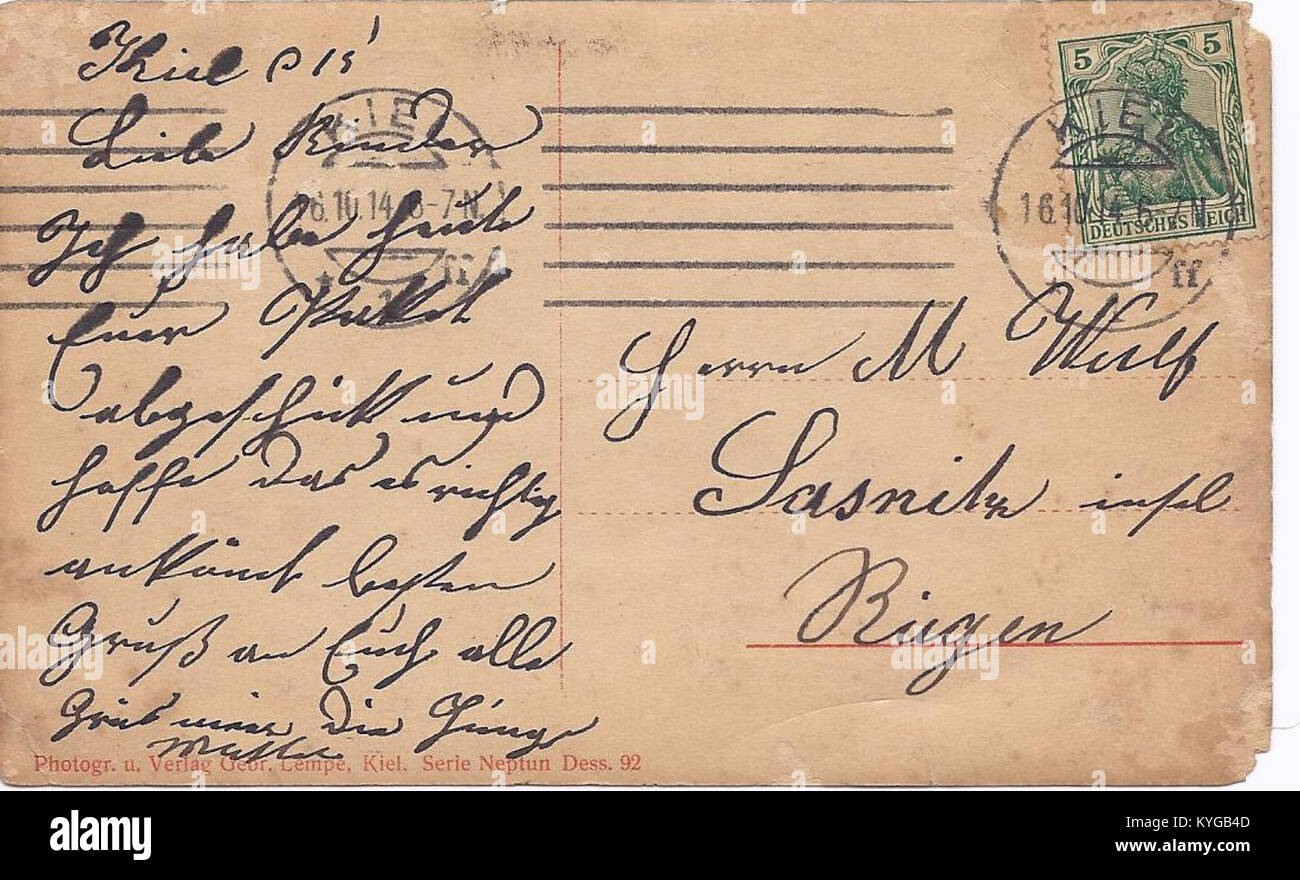 Kiel D 15
Liebe Kinder
Ich habe heute
Euer Paket
abgeschickt und
hoffe das es richtig
ankömt besten
Gruß an Euch alle
Grüs mier die Jungs
Mutter
Photogr. u. Verlag Gebr. Lempe, Kiel. Serie Neptun Dess. 92
KIEL
16.10.14 6-7N.
* 1 ff
5 5
DEUTSCHES REICH
KIEL
16.10.14 6-7N.
ff
Herrn M Wulf
Sasnitz insel
Rügen
alamy
Image ID: KYGB4D
www.alamy.com